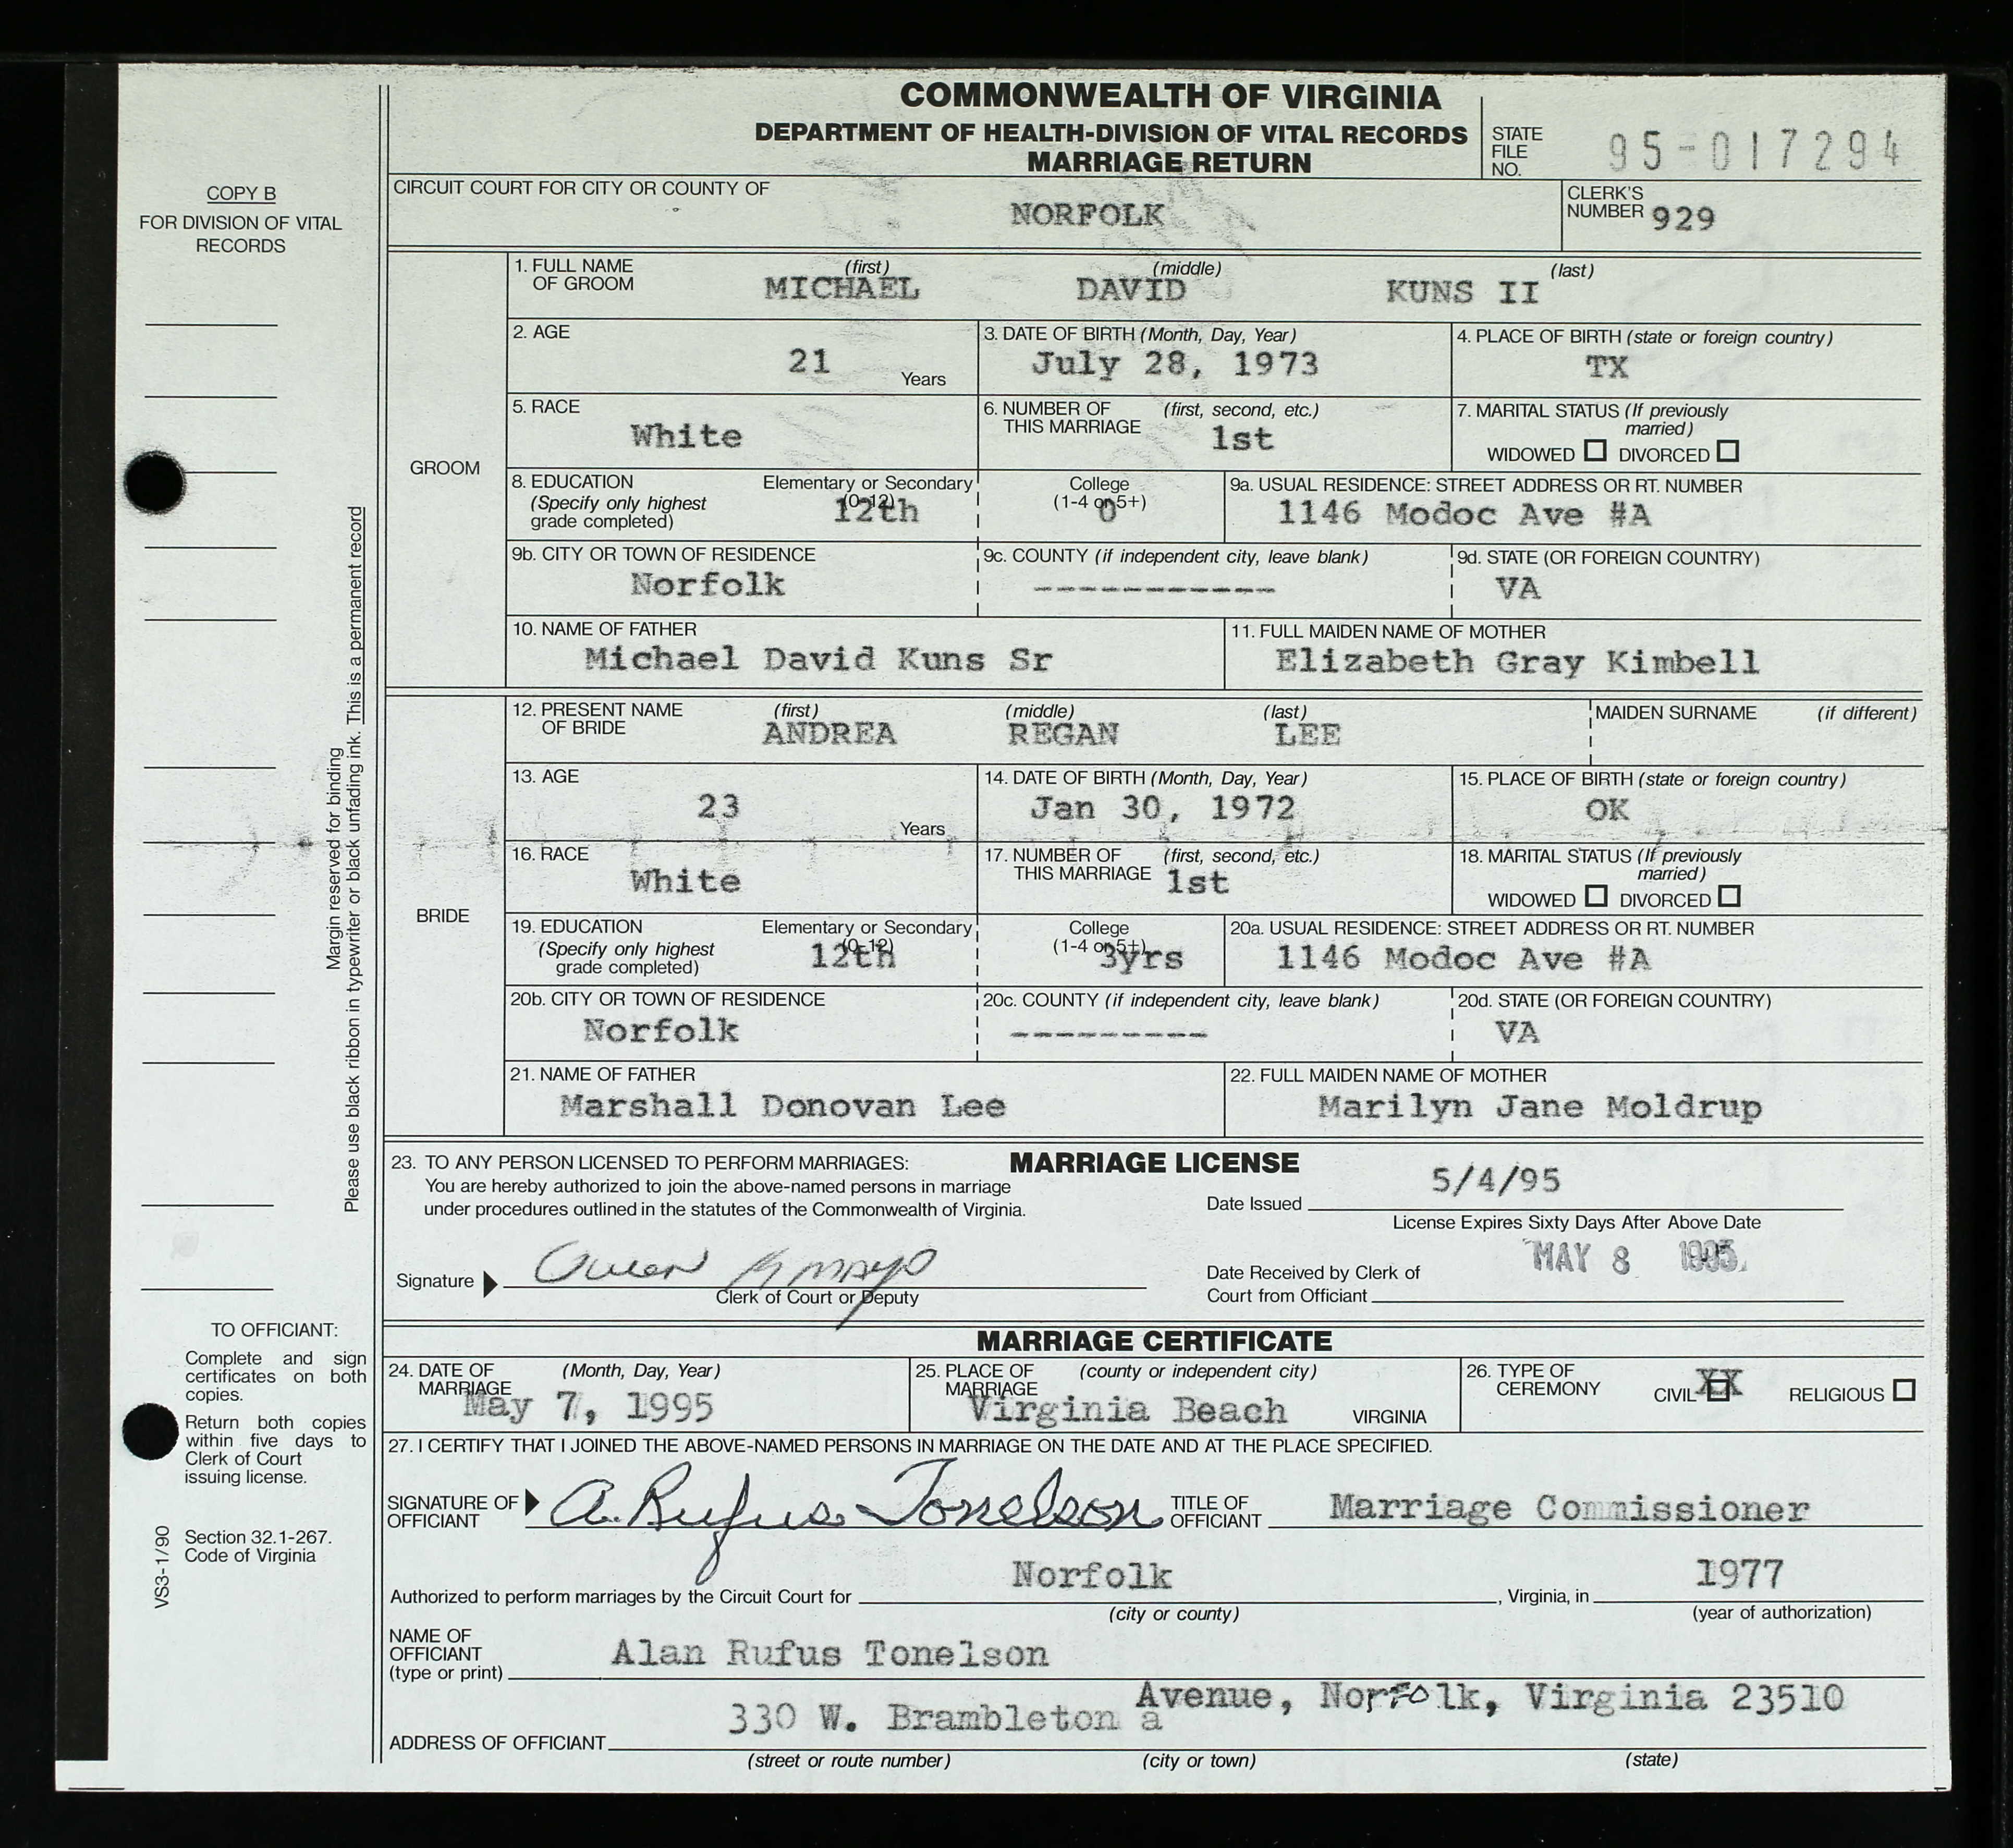 COMMONWEALTH OF VIRGINIA
DEPARTMENT OF HEALTH-DIVISION OF VITAL RECORDS
MARRIAGE RETURN
STATE FILE NO. 95-017294
COPY B
FOR DIVISION OF VITAL
RECORDS
CIRCUIT COURT FOR CITY OR COUNTY OF
NORFOLK
CLERK'S NUMBER 929
GROOM
1. FULL NAME OF GROOM (first) (middle) (last)
MICHAEL DAVID KUNS II
2. AGE 21 Years
3. DATE OF BIRTH (Month, Day, Year) July 28, 1973
4. PLACE OF BIRTH (state or foreign country) TX
5. RACE White
6. NUMBER OF THIS MARRIAGE (first, second, etc.) 1st
7. MARITAL STATUS (If previously married)
WIDOWED DIVORCED
8. EDUCATION (Specify only highest grade completed)
Elementary or Secondary (0-12) 12th
College (1-4 or 5+) 0
9a. USUAL RESIDENCE: STREET ADDRESS OR RT. NUMBER
1146 Modoc Ave #A
9b. CITY OR TOWN OF RESIDENCE Norfolk
9c. COUNTY (if independent city, leave blank) -----------
9d. STATE (OR FOREIGN COUNTRY) VA
10. NAME OF FATHER
Michael David Kuns Sr
11. FULL MAIDEN NAME OF MOTHER
Elizabeth Gray Kimbell
BRIDE
12. PRESENT NAME OF BRIDE (first) (middle) (last)
ANDREA REGAN LEE
MAIDEN SURNAME (if different)
13. AGE 23 Years
14. DATE OF BIRTH (Month, Day, Year) Jan 30, 1972
15. PLACE OF BIRTH (state or foreign country) OK
16. RACE White
17. NUMBER OF THIS MARRIAGE (first, second, etc.) 1st
18. MARITAL STATUS (If previously married)
WIDOWED DIVORCED
19. EDUCATION (Specify only highest grade completed)
Elementary or Secondary (0-12) 12th
College (1-4 or 5+) 3yrs
20a. USUAL RESIDENCE: STREET ADDRESS OR RT. NUMBER
1146 Modoc Ave #A
20b. CITY OR TOWN OF RESIDENCE Norfolk
20c. COUNTY (if independent city, leave blank) ---------
20d. STATE (OR FOREIGN COUNTRY) VA
21. NAME OF FATHER
Marshall Donovan Lee
22. FULL MAIDEN NAME OF MOTHER
Marilyn Jane Moldrup
Margin reserved for binding
Please use black ribbon in typewriter or black unfading ink. This is a permanent record
23. TO ANY PERSON LICENSED TO PERFORM MARRIAGES:
MARRIAGE LICENSE
You are hereby authorized to join the above-named persons in marriage
under procedures outlined in the statutes of the Commonwealth of Virginia.
Date Issued 5/4/95
License Expires Sixty Days After Above Date
Signature
Clerk of Court or Deputy
Date Received by Clerk of
Court from Officiant MAY 8 1995
MARRIAGE CERTIFICATE
24. DATE OF MARRIAGE (Month, Day, Year) May 7, 1995
25. PLACE OF MARRIAGE (county or independent city) Virginia Beach VIRGINIA
26. TYPE OF CEREMONY CIVIL XX RELIGIOUS
27. I CERTIFY THAT I JOINED THE ABOVE-NAMED PERSONS IN MARRIAGE ON THE DATE AND AT THE PLACE SPECIFIED.
SIGNATURE OF OFFICIANT A. Rufus Tonelson
TITLE OF OFFICIANT Marriage Commissioner
Authorized to perform marriages by the Circuit Court for Norfolk, Virginia, in 1977
(city or county) (year of authorization)
NAME OF OFFICIANT (type or print) Alan Rufus Tonelson
ADDRESS OF OFFICIANT 330 W. Brambleton a Avenue, Norfolk, Virginia 23510
(street or route number) (city or town) (state)
TO OFFICIANT:
Complete and sign
certificates on both
copies.
Return both copies
within five days to
Clerk of Court
issuing license.
Section 32.1-267.
Code of Virginia
VS3-1/90